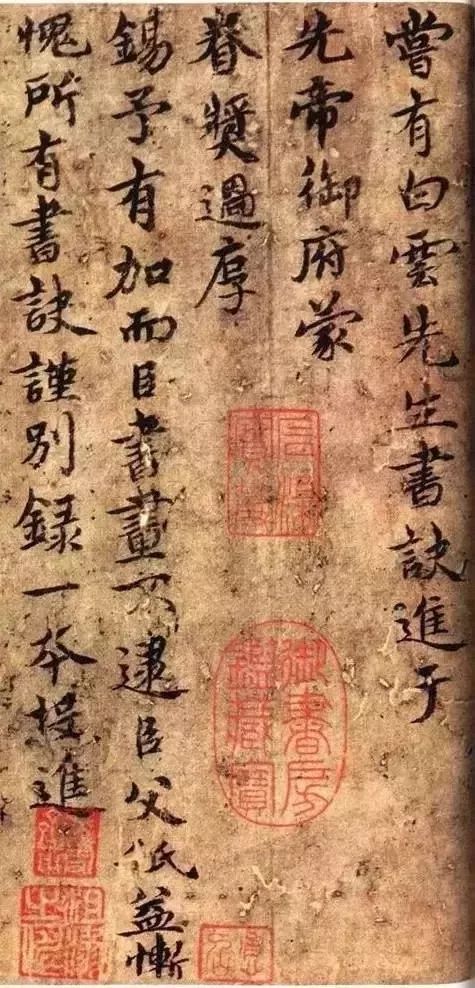 嘗有白雲先生書訣進于
先帝御府蒙
眷奬過厚
錫予有加而臣書畫不逮臣父祗益慚
愧所有書訣謹別錄一本投進
御書房鑑藏寶